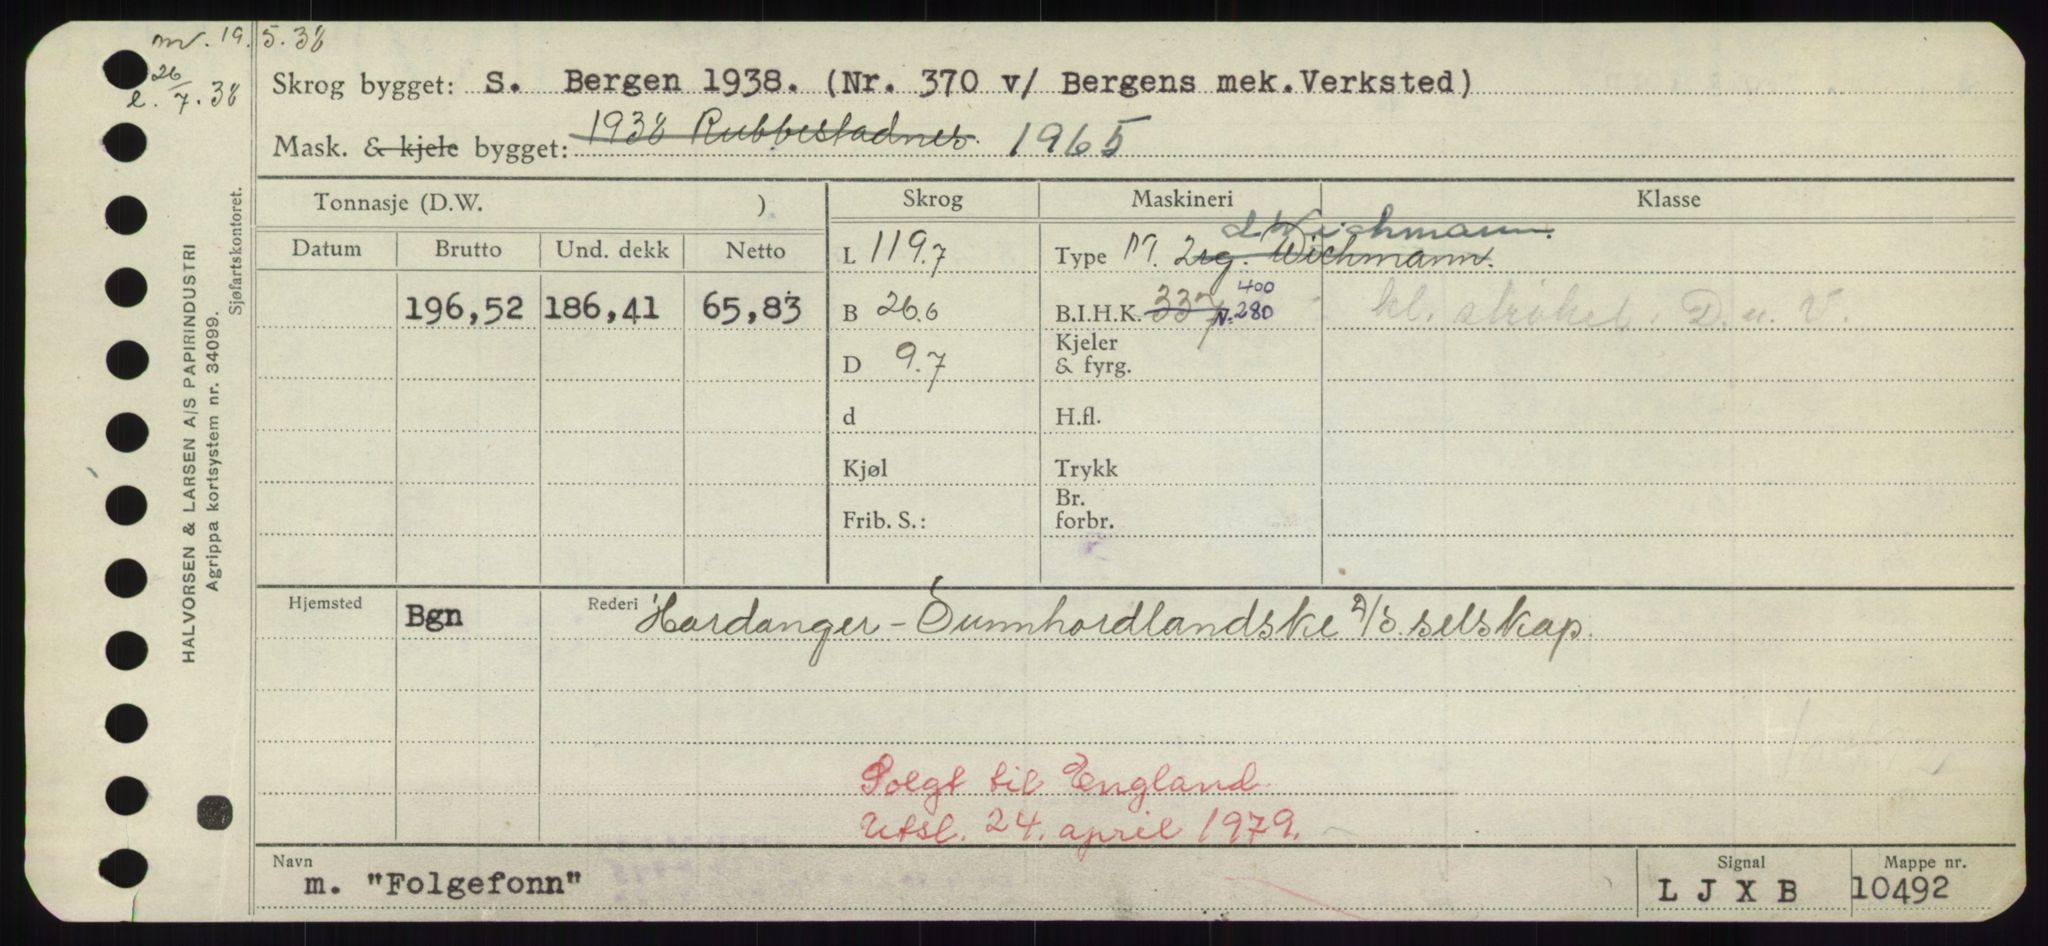 m. 19.5.38
e. 26/7.38
Skrog bygget: S. Bergen 1938. (Nr. 370 v/ Bergens mek.Verksted)
Mask. & kjele bygget: 1938 Rubbestadnes. 1965
Tonnasje (D.W. ) Skrog Maskineri Klasse
Datum Brutto Und. dekk Netto
L 119.7 Type M. 2rg. Wichmann. Wichmann.
196,52 186,41 65,83 B 26.6 B.I.H.K. 337 N. 280 400 kl. strøket. D. u. V.
D 9.7 Kjeler & fyrg.
d H.fl.
Kjøl Trykk
Frib. S.: Br. forbr.
Hjemsted Bgn Rederi Hardanger - Sunnhordlandske D/S. selskap.
Solgt til England.
Utsl. 24. april 1979.
Navn m. "Folgefonn" Signal L J X B Mappe nr. 10492
HALVORSEN & LARSEN A/S PAPIRINDUSTRI
Agrippa kortsystem nr. 34099.
Sjøfartskontoret.